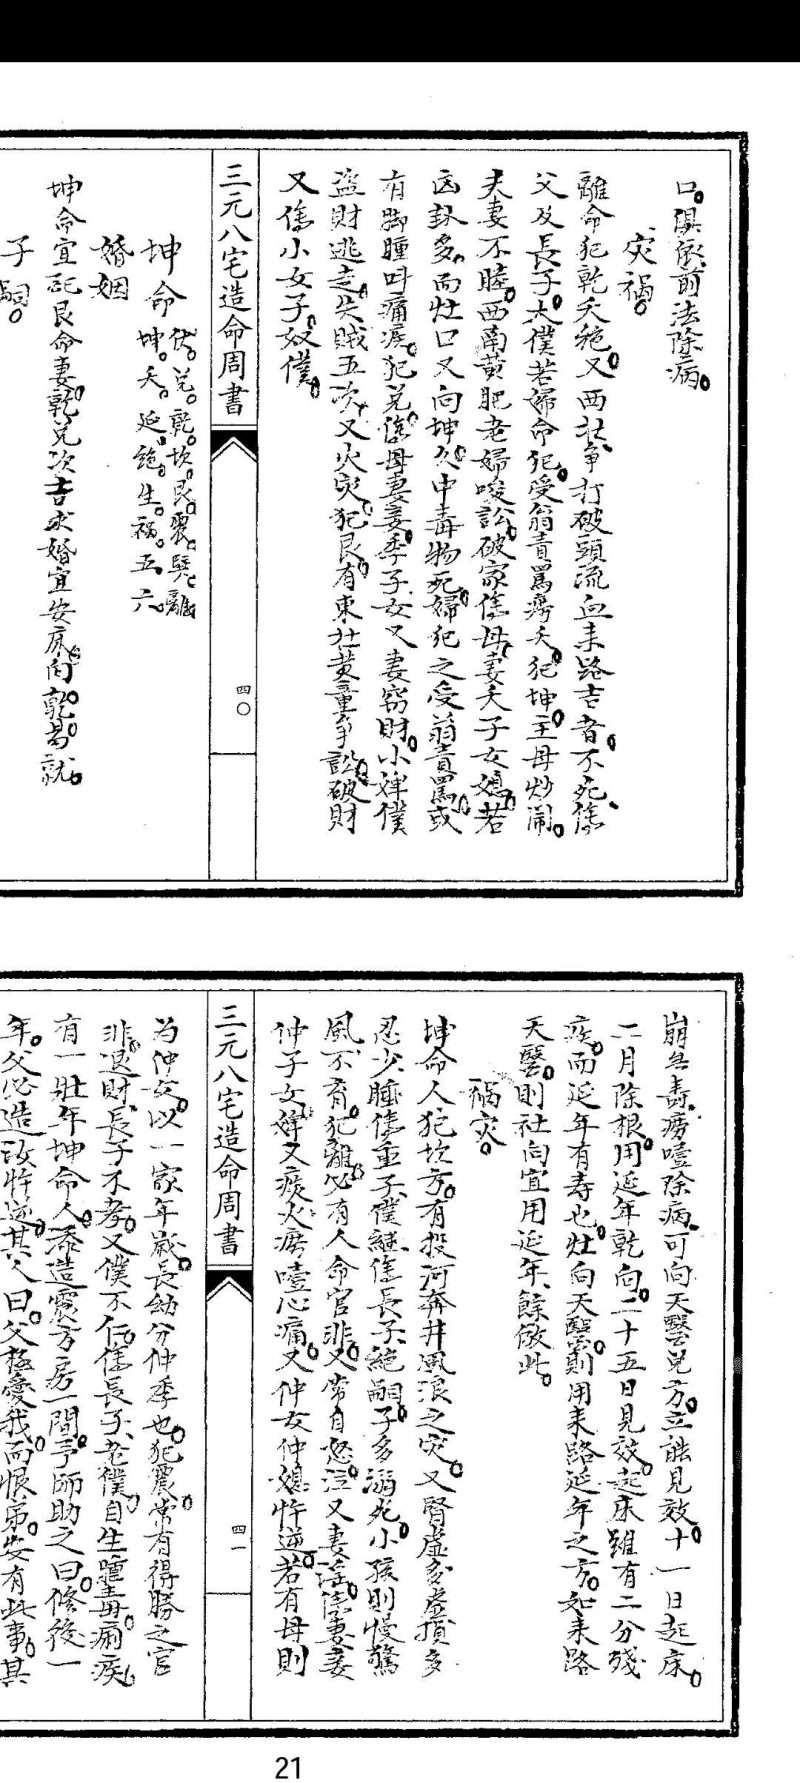 口。俱依前法除病。
灾禍。
離命犯乾夭絶。又西北爭打破頭流血来路吉者。不死傷
父及長子。大僕若婦命犯。受翁責罵癆夭。犯坤。主母炒閙。
夫妻不睦。西南黄肥老婦唆訟。破家傷母。妻夭子女媳。若
凶卦多。而灶口又向坤。久中毒物死。婦犯之受翁責罵。或
有脚腫呌痛疾。犯兑。傷母妻妾季子。女又妻窃財。小婢僕
盗財逃走。失賊五次。又火灾。犯艮。有東北黄童爭訟。破財
又傷小女子。奴僕。
三元八宅造命周書
四〇
坤命 伏。兑。乾。坎。艮。震。巽。離
坤。天。延。絶。生。禍。五。六。
婚姻
坤命宜配艮命妻。乾兑次吉求婚宜安床。向乾。易就。
子嗣。
崩無壽。癆噎除病。可向天醫兑方。立誰見效。十一日起床。
二月除根。用延年乾向。二十五日見效。起床雖有二分殘
疾。而延年有寿也。灶向天醫。則用来路延年之方。如来路
天醫。則社向宜用延年。餘倣此。
禍灾。
坤命人犯坎方。有投河奔井風浪之灾。又腎虚多虚損多
忍少睡傷重子。僕継傷長子。絶嗣。子多溺死。小孩則慢驚
風不育。犯離。必有人命官非。又常自怒。泣又妻淫。傷妻妾
仲子女。婢又痰火癆噎心痛。又仲女仲媳忤逆。若有母則
三元八宅造命周書
四一
为仲女。以一家年歲。長幼分仲季也。犯震。常有得勝之官
非。退財。長子不孝。又僕不仁。傷長子。老僕。自生腫毒。痢疾。
有一壯年坤命人。添造震方房一間。予師助之曰。修後一
年。父必造汝忤逆。其人曰。父極愛我。而恨弟。安有此事。其
21